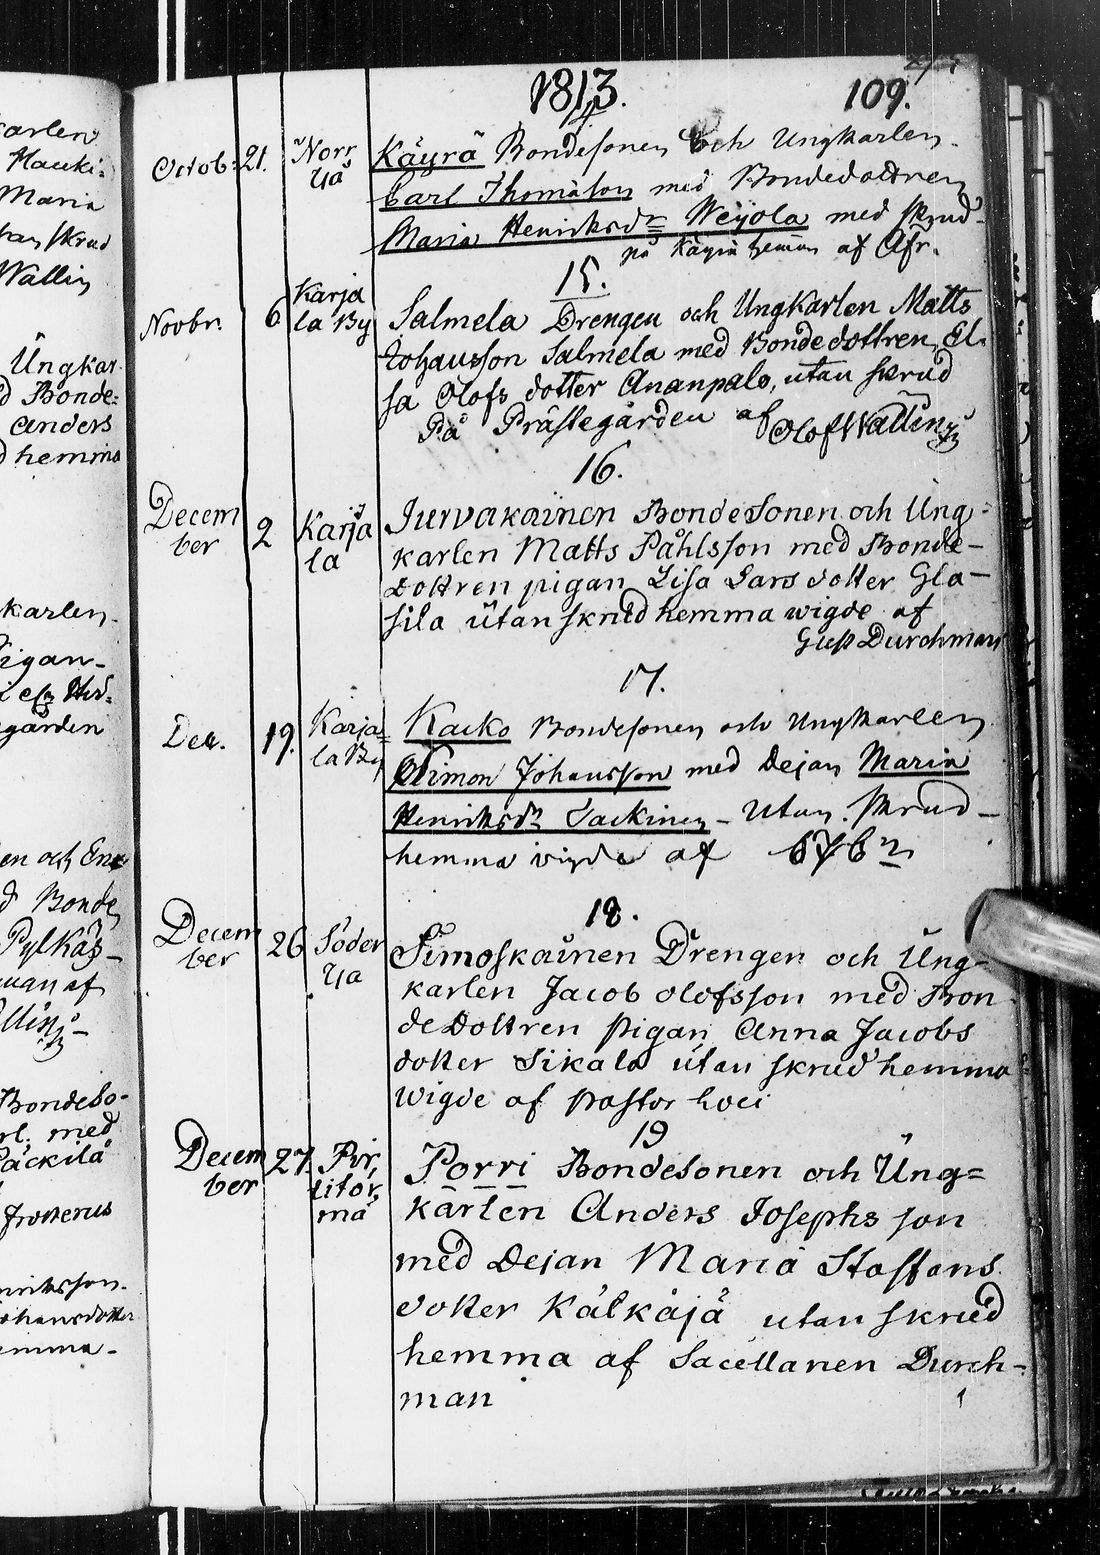 1813.
109.
14
Octob: 21. Norr Yä Käyrä Bondesonen Och Ungkarlen
Carl Thomason med Bondedottren
Maria Henriksdr Weijola med skrud
på Käyrä hemman af Afr.
15.
Novbr. 6 Karja la By Salmela Drengen och Ungkarlen Matts
Johansson Salmela med Bondedottren El-
sa Olofs dotter Ananpalo, utan skrud
På Prästegården af Olof Wallin
16.
Decem ber 2 Karja la Jurvakainen Bondesonen och Ung-
karlen Matts Påhlsson med Bonde-
dottren pigan Lisa Lars dotter Gla-
sila utan skrud hemma wigde af
Gust Durchman
17.
Dec. 19. Karja= la By Kacko Bondesonen och Ungkarlen
Simon Johansson med Dejan Maria
Henriksdr Tackinen - Utan skrud -
hemma vigde af
18.
Decem ber 26 Söder Yä Simoskainen Drengen och Ung=
karlen Jacob Olofsson med Bon-
de Dottren pigan Anna Jacobs
dotter Sikala utan skrud hemma
wigde af Pastor loci
19
Decem ber 27 Pir titör mä Porri Bondesonen och Ung=
karlen Anders Josephs son
med Dejan Maria Staffans
dotter Kälkäjä utan skrud
hemma af Sacellanen Durch-
man